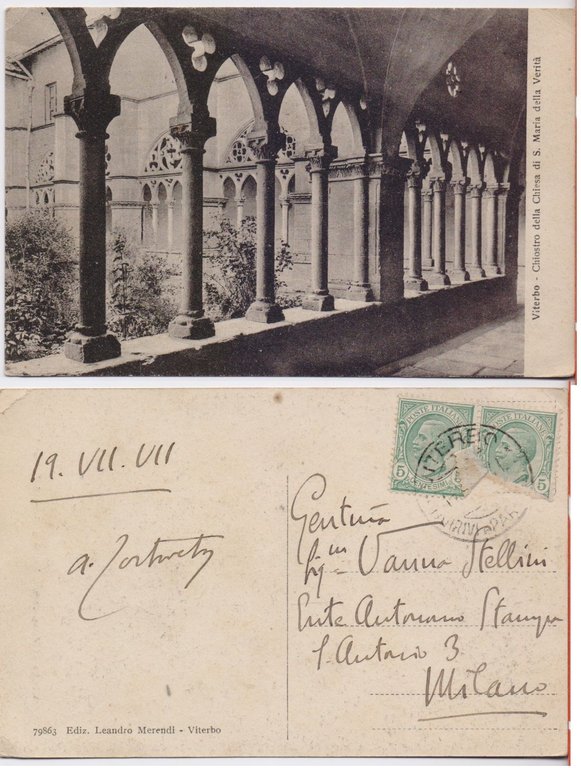 Viterbo - Chiostro della Chiesa di S. Maria della Verità
19. VII. VII
POSTE ITALIANE
5
CENTESIMI
POSTE ITALIANE
5
VITERBO
Gentma
Sigina Vanna Stellini
Ente Autonomo Stampa
S. Antonio 3
Milano
79863 Ediz. Leandro Merendi - Viterbo